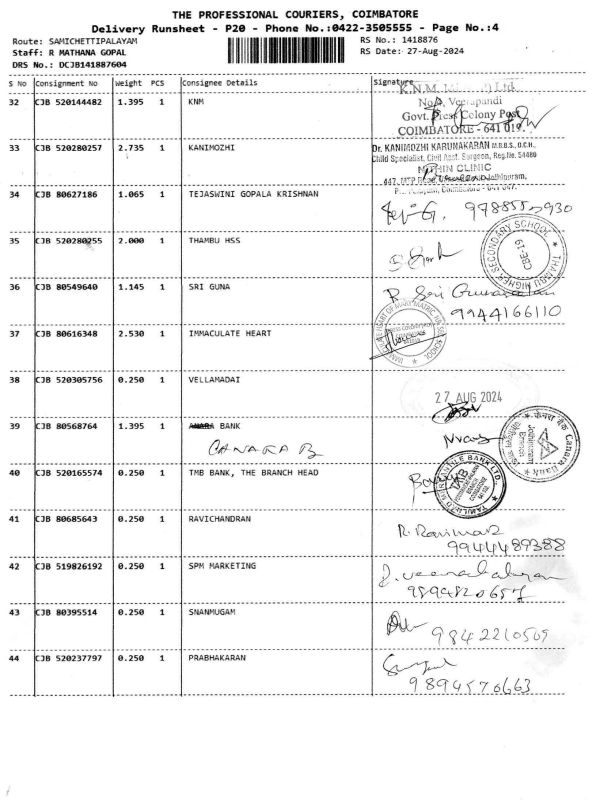 THE PROFESSIONAL COURIERS, COIMBATORE
Delivery Runsheet - P20 - Phone No.:0422-3505555 - Page No.:4
Route: SAMICHETTIPALAYAM RS No.: 1418876
Staff: R MATHANA GOPAL RS Date: 27-Aug-2024
DRS No.: DCJB141887604
S No Consignment No Weight PCS Consignee Details Signature
K.N.M.
32 CJB 520144482 1.395 1 KNM
No. Veerapandi
Govt. Press Colony Post
COIMBATORE - 641 019.
33 CJB 520280257 2.735 1 KANIMOZHI Dr. KANIMOZHI KARUNAKARAN M.B.B.S., D.C.H.,
Child Specialist, Civil Asst. Surgeon, Reg.No. 54480
CLINIC
447, MTP Road
34 CJB 80627186 1.065 1 TEJASWINI GOPALA KRISHNAN
35 CJB 520280255 2.000 1 THAMBU HSS
THAMBU HIGHER SECONDARY SCHOOL
CBE-19
36 CJB 80549640 1.145 1 SRI GUNA
9944166110
37 CJB 80616348 2.530 1 IMMACULATE HEART
HEART OF MARY MATRIC. HR. SEC. SCHOOL
38 CJB 520305756 0.250 1 VELLAMADAI
27 AUG 2024
39 CJB 80568764 1.395 1 BANK
CANARA B
Canara Bank
40 CJB 520165574 0.250 1 TMB BANK, THE BRANCH HEAD
TAMILNAD MERCANTILE BANK LTD.
41 CJB 80685643 0.250 1 RAVICHANDRAN
9944489388
42 CJB 519826192 0.250 1 SPM MARKETING
43 CJB 80395514 0.250 1 SNANMUGAM
44 CJB 520237797 0.250 1 PRABHAKARAN
9894570663